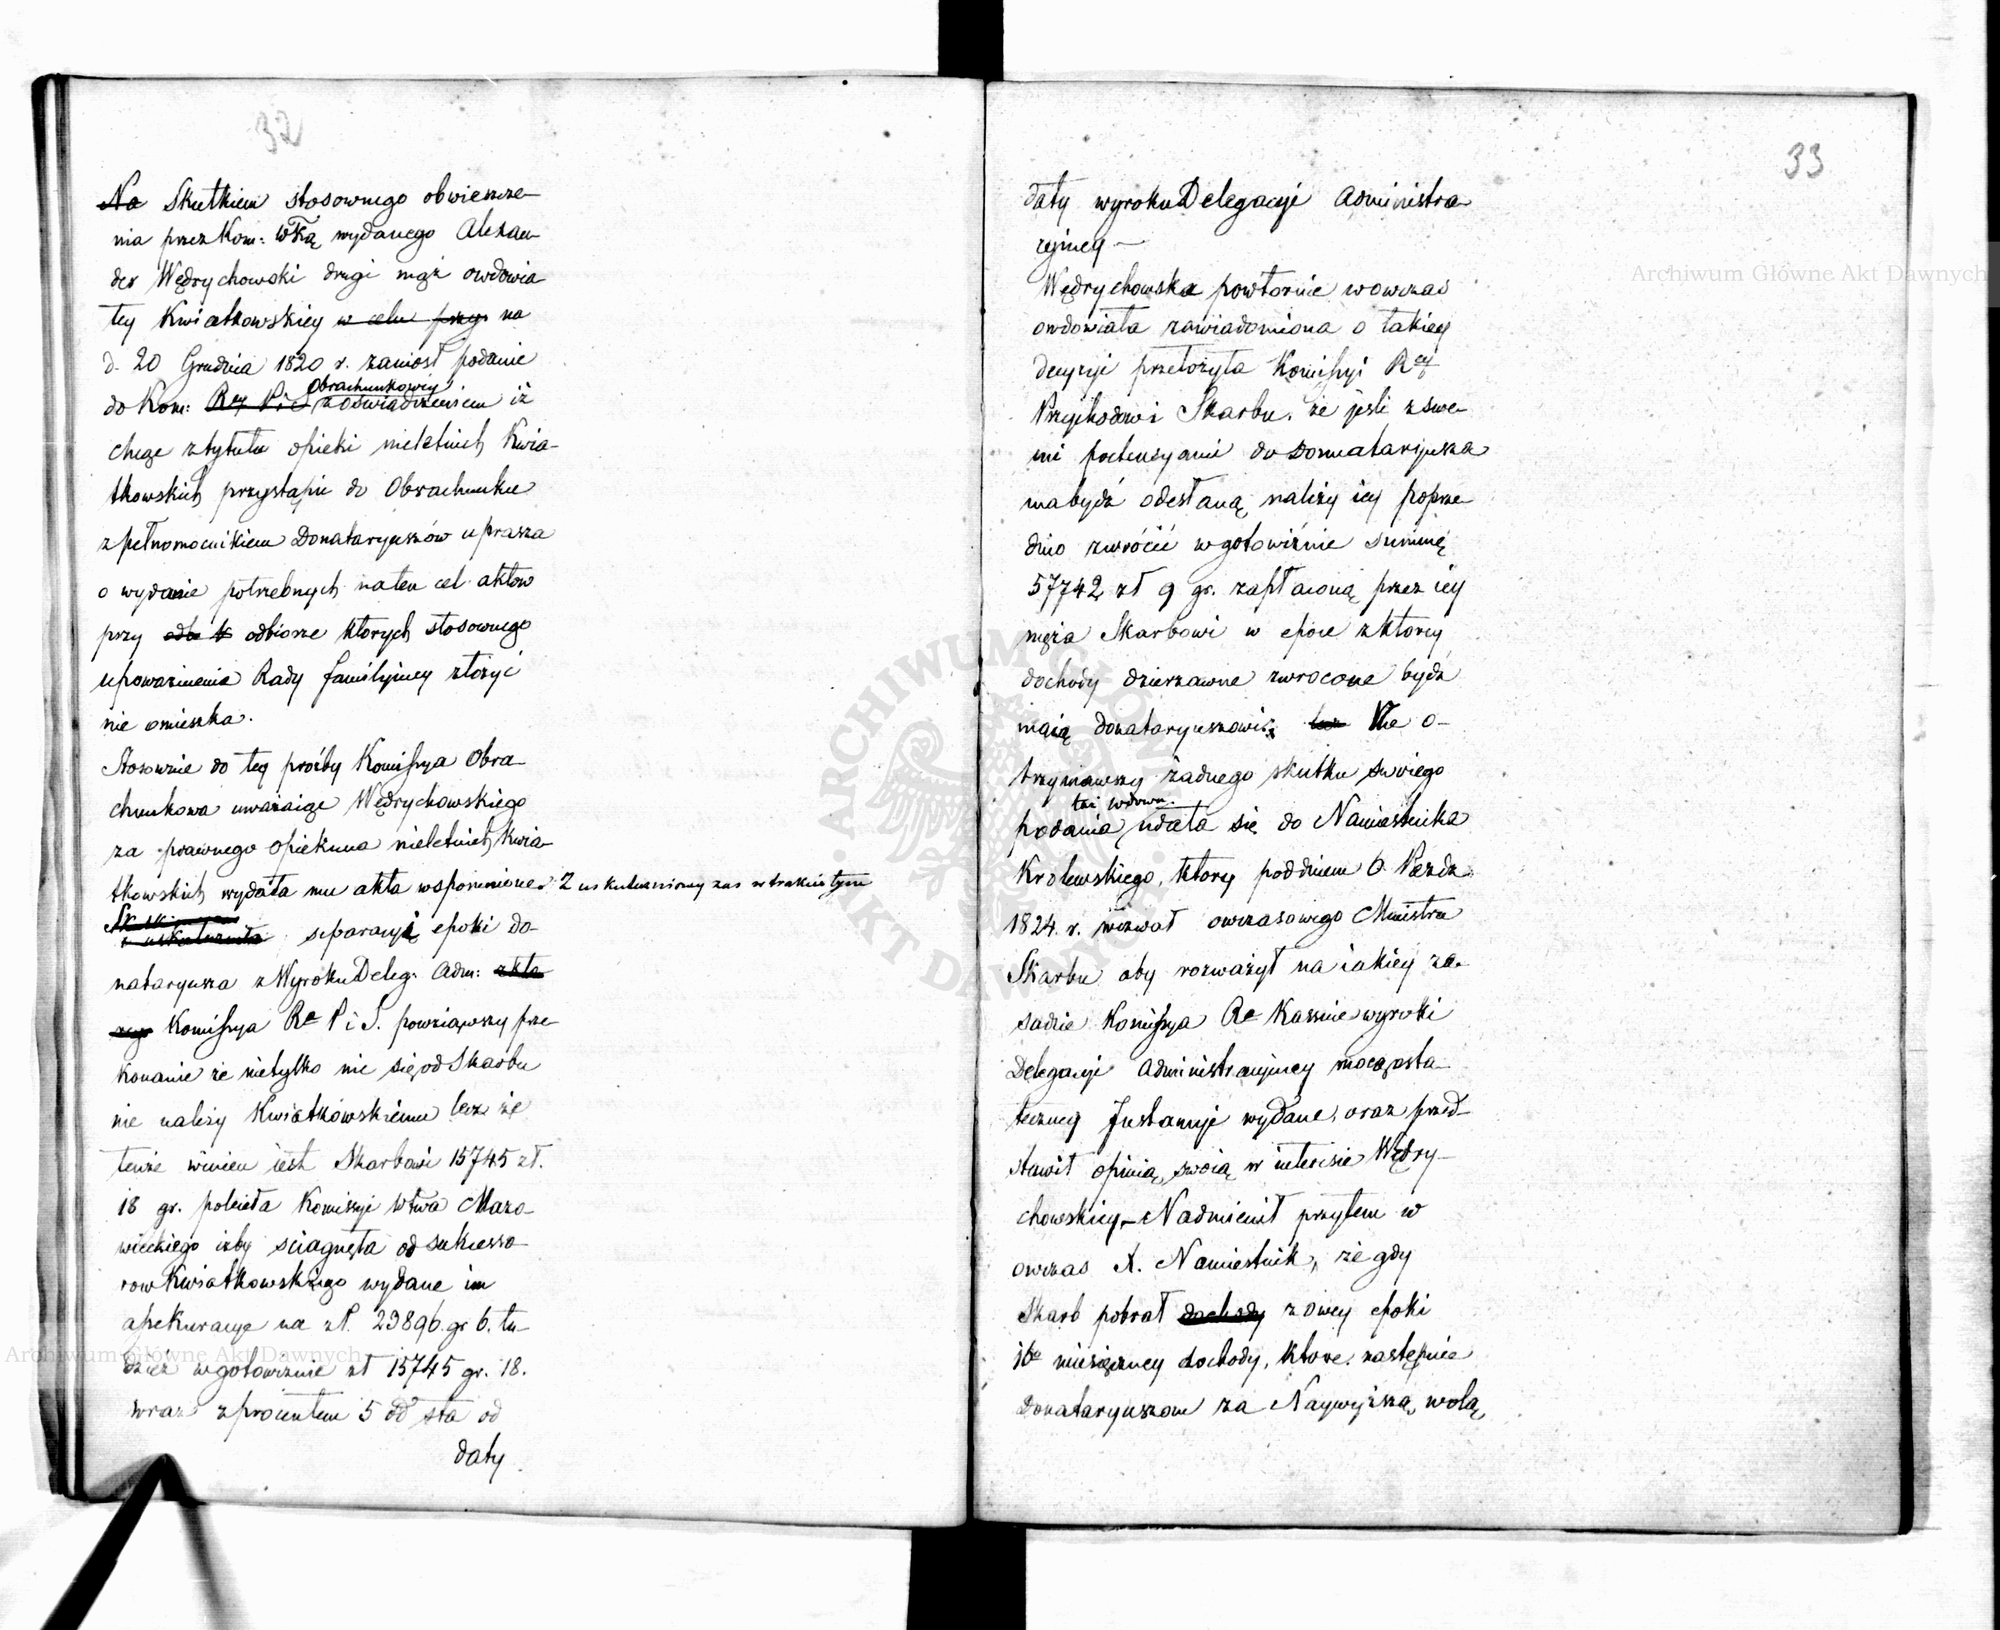 32
Na Skutkiem stosownego obwieszcze-
nia przez Kom: Wką wydanego Alexan-
der Wędrychowski drugi mąż owdowia-
łey Kwiatkowskiey w celu przy na
d. 20 Grudnia 1820 r. zaniosł podanie
Obrachunkowey
do Kom: Rey P i S z oświadczeniem iż
chcąc z tytułu opieki nieletnich Kwia-
tkowskich przystąpić do Obrachunku
z pełnomocnikiem Donataryuszów uprasza
o wydanie potrzebnych na ten cel aktow
przy odbiorze ktorych stosownego
upoważnienia Rady familyiney złożyć
nie omieszka.
Stosownie do tey prośby Kommissya Obra-
chunkowa uważaiąc Wędrychowskiego
za prawnego opiekuna nieletnich Kwia-
tkowskich wydała mu akta wspomnione. Z uskutecznioney zas w trakcie tym
separacyi epoki do-
nataryusza z Wyroku Deleg: Adm:
Kommissya Ra P i S. powziąwszy prze-
konanie że nietylko nic się od Skarbu
nie należy Kwiatkowskiemu lecz że
tenże winien iest Skarbowi 15745 zł.
18 gr. poleciła Kommissyi Wtwa Mazo-
wieckiego iżby sciągnęła od sukcesso-
row Kwiatkowskiego wydane im
assekuracye na zł. 23896. gr 6. tu-
dzież w gotowiznie zł 15745 gr. 18.
wraz z procentem 5 od sta od
daty
33
daty wyroku Delegacyi Administra-
cyiney —
Wędrychowska powtornie wowczas
owdowiała zawiadomiona o takiey
decyzyi przełożyła Kommissyi Rey
Przychodow i Skarbu, że jeśli z swe-
mi pretensyami do Donnataryusza
ma bydź odesłaną, należy iey poprze-
dnio zwrócić w gotowiźnie summę
57742 zł 9 gr. zapłaconą przez iey
męża Skarbowi w epoce z ktorey
dochody dzierzawne zwrocone bydź
maią donataryuszowi; lecz Nie o-
trzymawszy żadnego skutku swoiego
taż wdowa
podania, udała się do Namiestnika
Krolewskiego, ktory pod dniem 6. Pazdz.
1824. r. wezwał owczasowego Ministra
Skarbu aby rozważył na iakiey za-
sadzie Kommissya Ra Kassuie wyroki
Delegacyi Administracyiney mocą osta-
teczney Instancyi wydane, oraz przed-
stawił opinią swoią w interesie Wędry-
chowskiey. – Nadmienił przytem w
owczas X. Namiestnik, że gdy
Skarb pobrał dochody z owey epoki
16o miesięczney dochody, ktore następnie
Donataryuszom za Naywyższą wolą
Archiwum Główne Akt Dawnych
Archiwum Główne Akt Dawnych
ARCHIWUM GŁÓWNE
AKT DAWNYCH